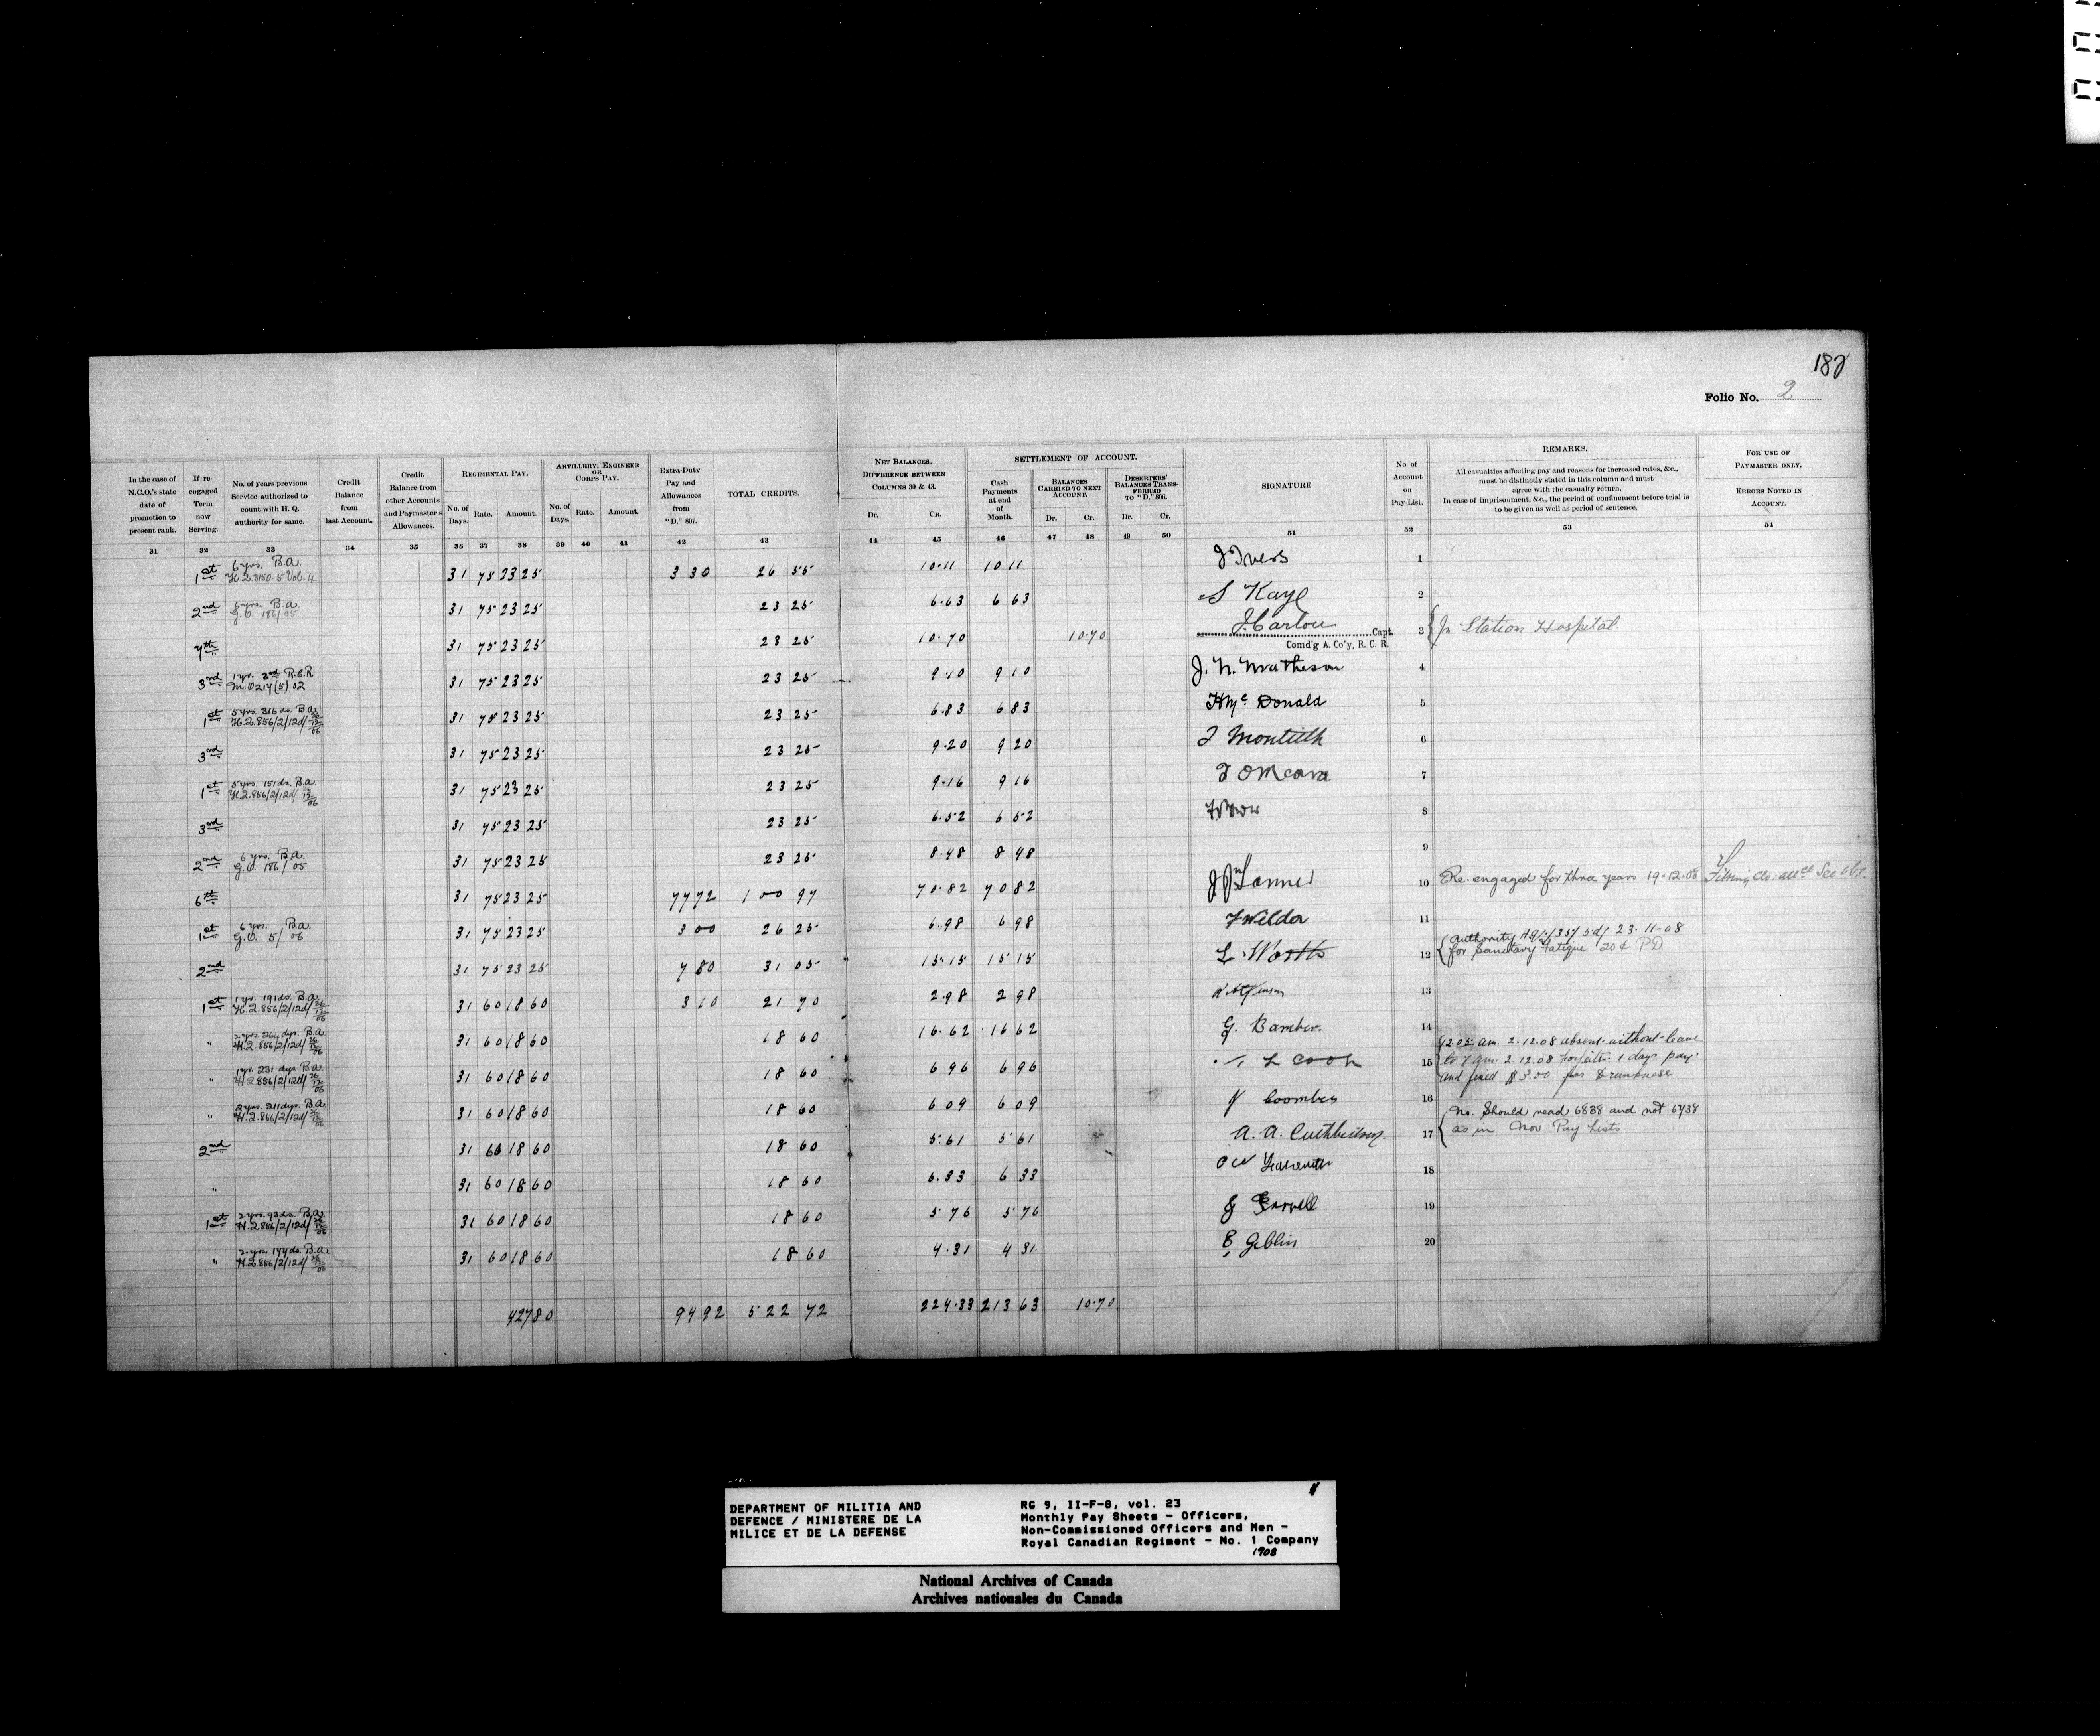 182
Folio No. 2
In the case of N.C.O.'s state date of promotion to present rank.
If re-engaged Term now Serving.
No. of years previous Service authorized to count with H. Q. authority for same.
Credit Balance from last Account.
Credit Balance from other Accounts and Paymaster's Allowances.
REGIMENTAL PAY.
No. of Days. Rate. Amount.
ARTILLERY, ENGINEER OR CORPS PAY.
No. of Days. Rate. Amount.
Extra-Duty Pay and Allowances from "D." 807.
TOTAL CREDITS.
NET BALANCES. DIFFERENCE BETWEEN COLUMNS 30 & 43.
Dr. CR.
SETTLEMENT OF ACCOUNT.
Cash Payments at end of Month.
BALANCES CARRIED TO NEXT ACCOUNT.
Dr. Cr.
DESERTERS' BALANCES TRANSFERRED TO "D." 806.
Dr. Cr.
SIGNATURE
No. of Account on Pay-List.
REMARKS.
All casualties affecting pay and reasons for increased rates, &c., must be distinctly stated in this column and must agree with the casualty return.
In case of imprisonment, &c., the period of confinement before trial is to be given as well as period of sentence.
FOR USE OF PAYMASTER ONLY.
ERRORS NOTED IN ACCOUNT.
31 32 33 34 35 36 37 38 39 40 41 42 43 44 45 46 47 48 49 50 51 52 53 54
1st 6 yrs. B.a. 31 75 23 25 3 30 26 55 10.11 10 11 J Ivers 1
2nd 6 yrs. B.a. G.O. 186/05 31 75 23 25 23 25 6.63 6 63 S Kaye 2
7th 31 75 23 25 23 25 10.70 10.70 Capt. Comd'g A. Co'y, R. C. R. 3 In Station Hospital
3rd 1 yr. 3rd R.C.R. 31 75 23 25 23 25 9.10 9 10 J. N. Matheson 4
1st 5 yrs. 316 ds. B.a. H.Q. 856/2/12d/ 31 75 23 25 23 25 6.83 6 83 H Mc Donald 5
3rd 31 75 23 25 23 25 9.20 9 20 J Montieth 6
1st 5 yrs. 151 ds. B.a. H.Q. 856/2/12d/ 31 75 23 25 23 25 9.16 9 16 7
3rd 31 75 23 25 23 25 6.52 6 52 8
2nd 6 yrs. B.a. G.O. 186/05 31 75 23 25 23 25 8.48 8 48 9
6th 31 75 23 25 77 72 100 97 70.82 70 82 10 Re-engaged for three years 19-12-08
1st 6 yrs. B.a. G.O. 5/06 31 75 23 25 3 00 26 25 6.98 6 98 11
2nd 31 75 23 25 7 80 31 05 15.15 15 15 L. Worth 12 authority 23-11-08
for Sanitary Fatigue 20¢ P.D.
1st 1 yr. 191 ds. B.a. H.Q. 856/2/12d/ 31 60 18 60 3 10 21 70 2.98 2 98 13
" 2 yrs. 264 dys. B.a. H.Q. 856/2/12d/ 31 60 18 60 18 60 16.62 16 62 G. Bamber. 14
" 1 yr. 231 dys B.a. H.Q. 856/2/12d/ 31 60 18 60 18 60 6 96 6 96 L Cook 15 12.05 am. 2.12.08 absent without leave
to 7 am. 2.12.08 forfeits 1 days pay.
and fined $3.00 for drunkness
" 2 yrs. 211 dys. B.a. H.Q. 856/2/12d/ 31 60 18 60 18 60 6 09 6 09 J Coombes 16
2nd 31 60 18 60 18 60 5.61 5 61 A. A. Cuthbertson. 17 No. Should read 6838 and not 6738
as in Nov. Pay Lists
" 31 60 18 60 18 60 6.33 6 33 18
1st 2 yrs. 93 ds. B.a. H.Q. 856/2/12d/ 31 60 18 60 18 60 5 76 5 76 19
" 2 yrs. 174 ds. B.a. H.Q. 856/2/12d/ 31 60 18 60 18 60 4.31 4 31 E. Giblin 20
427 80 94 92 522 72 224.33 213 63 10.70
DEPARTMENT OF MILITIA AND
DEFENCE / MINISTERE DE LA
MILICE ET DE LA DEFENSE
RG 9, II-F-8, vol. 23
Monthly Pay Sheets - Officers,
Non-Commissioned Officers and Men -
Royal Canadian Regiment - No. 1 Company
1908
National Archives of Canada
Archives nationales du Canada